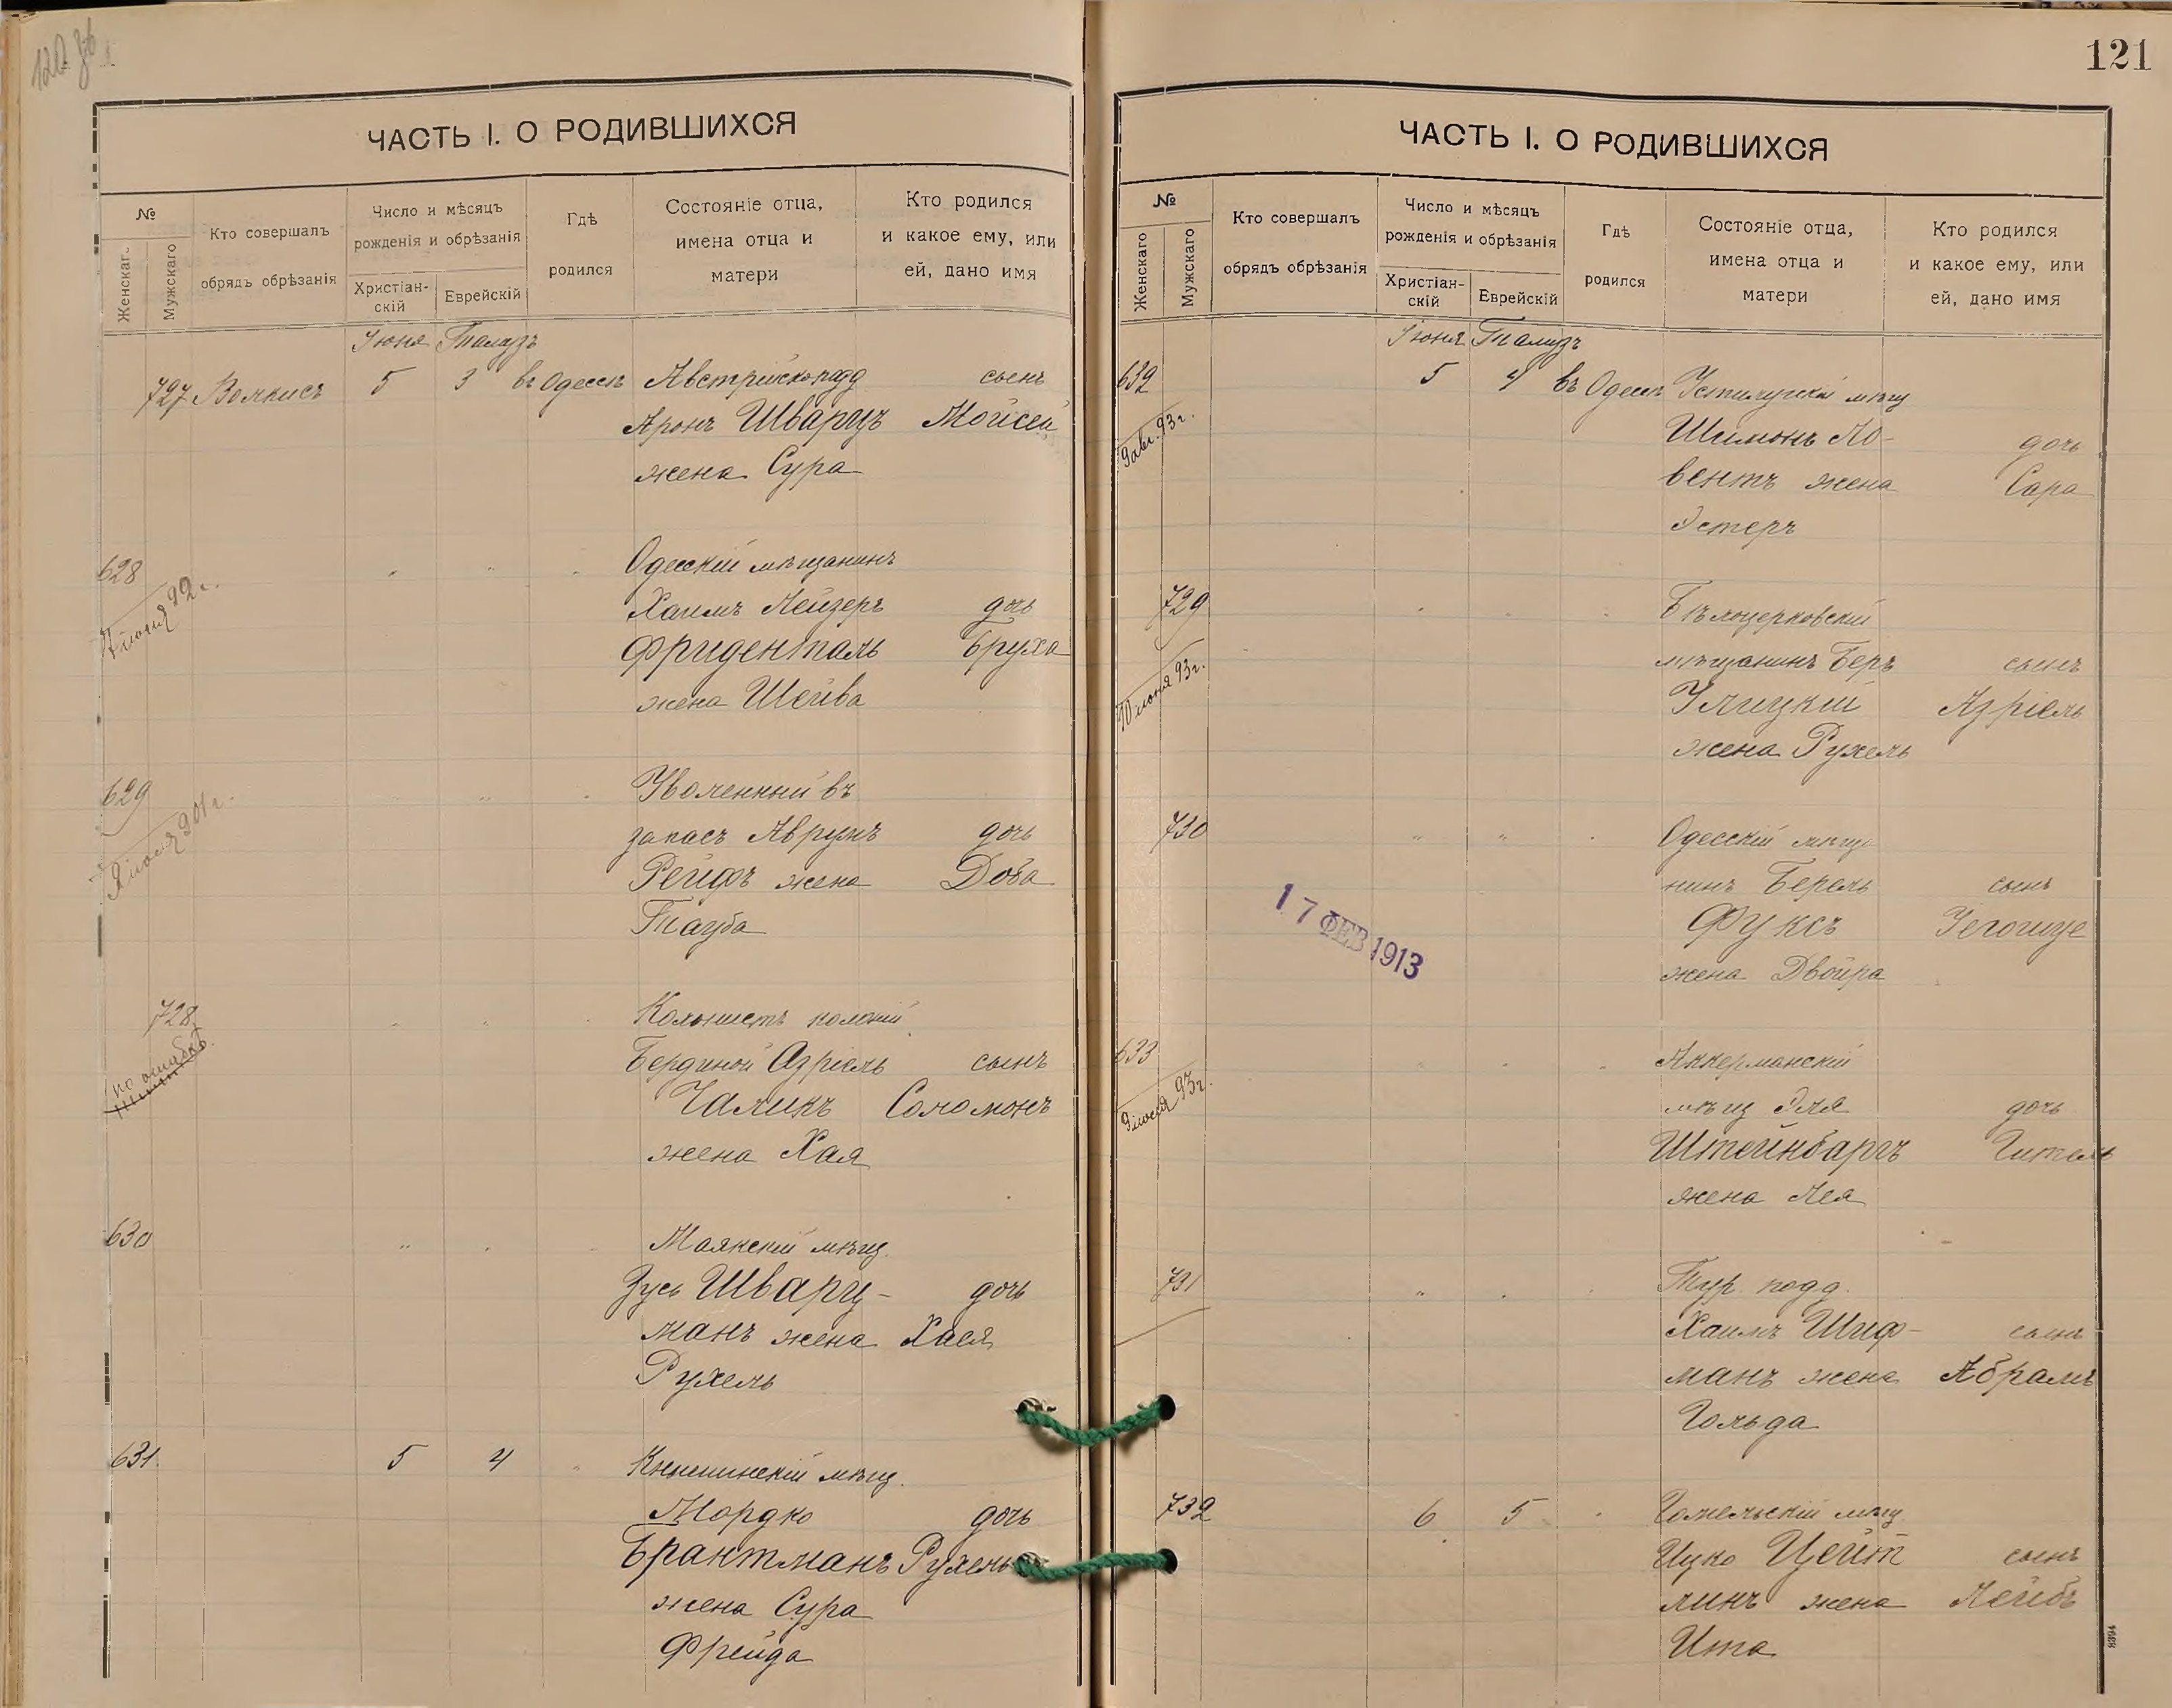 120 об
ЧАСТЬ I. О РОДИВШИХСЯ
№
Женскаг.
Мужскаго
Кто совершалъ
обрядъ обрѣзанія
Число и мѣсяцъ
рожденія и обрѣзанія
Христіан-
скій
Еврейскій
Гдѣ
родился
Состояніе отца,
имена отца и
матери
Кто родился
и какое ему, или
ей, дано имя
Іюня Тамузъ
727 Волкисъ 5 3 въ Одессѣ Австрійско подд сынъ
Аронъ Шварцъ Мойсей
жена Сура
628 Одесскій мѣщанинъ
Хаимъ Лейзеръ дочь
Фриденталь Бруха
жена Шейва
629 Уволенный въ
запасъ Аврумъ дочь
Рейфъ жена Доба
Тауба
728 Колонистъ колоніи
по ошибкѣ
Азріель сынъ
Чаликъ Соломонъ
жена Хая
630 Маякскій мѣщ.
Зусь Шварц- дочь
манъ жена Хася
Рухель
631 5 4 Кнышинскій мѣщ.
Мордко дочь
Брантманъ Рухель
жена Сура
Фрейда
121
ЧАСТЬ I. О РОДИВШИХСЯ
№
Женскаго
Мужскаго
Кто совершалъ
обрядъ обрѣзанія
Число и мѣсяцъ
рожденія и обрѣзанія
Христіан-
скій
Еврейскій
Гдѣ
родился
Состояніе отца,
имена отца и
матери
Кто родился
и какое ему, или
ей, дано имя
Іюня Тамузъ
632 5 4 въ Одессѣ Устилугскій мѣщ
9 авг. 93 г.
Шимонъ Ло- дочь
вентъ жена Сара
Эстеръ
729 Бѣлоцерковскій
іюня 93 г.
мѣщанинъ Беръ сынъ
Улицкій Азріель
жена Рухель
730 Одесскій мѣща
нинъ Берель сынъ
Фуксъ Іегошуе
жена Двойра
17 ФЕВ 1913
633 Аккерманскій
93 г.
мѣщ Эля дочь
Штейнбаргъ Гитель
жена Лея
731 Тур. подд.
Хаимъ Шиф- сынъ
манъ жена Абрамъ
Гольда
732 6 5 Гомельскій мѣщ
Ицко Цейт сынъ
линъ жена Лейбъ
Ита
8394